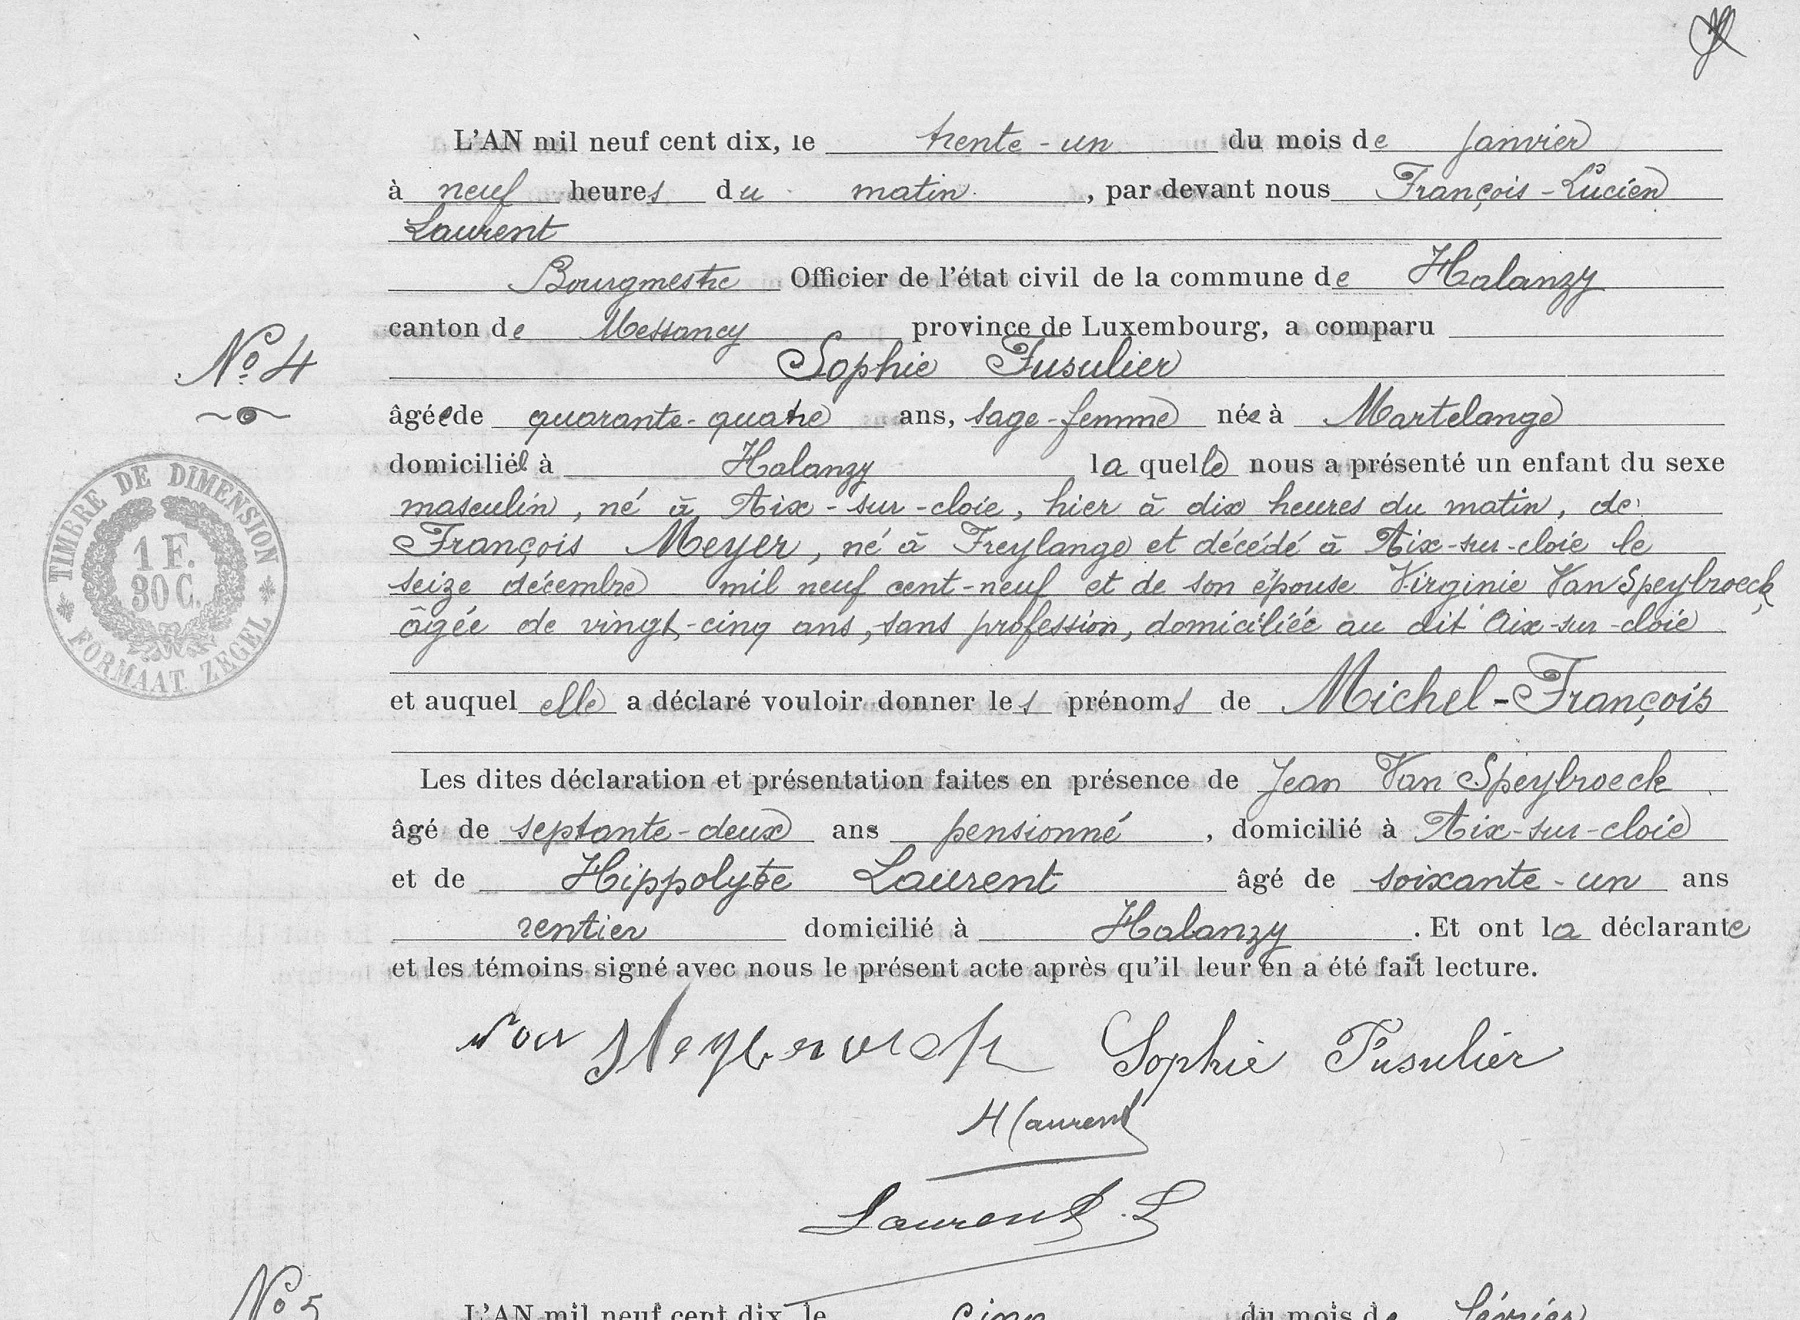 L'AN mil neuf cent dix, le trente-un du mois de janvier
à neuf heures du matin, par devant nous François-Lucien
Laurent
Bourgmestre Officier de l'état civil de la commune de Halanzy
canton de Messancy province de Luxembourg, a comparu
No 4
Sophie Fusulier
âgée de quarante-quatre ans, sage-femme née à Martelange
domiciliée à Halanzy laquelle nous a présenté un enfant du sexe
masculin, né à Aix-sur-cloie, hier à dix heures du matin, de
François Meyer, né à Freylange et décédé à Aix-sur-cloie le
seize décembre mil neuf cent-neuf et de son épouse Virginie Van Speybroeck
âgée de vingt-cinq ans, sans profession, domiciliée au dit Aix-sur-cloie
TIMBRE DE DIMENSION
1 F.
30 C.
FORMAAT ZEGEL
et auquel elle a déclaré vouloir donner les prénoms de Michel-François
Les dites déclaration et présentation faites en présence de Jean Van Speybroeck
âgé de septante-deux ans pensionné, domicilié à Aix-sur-cloie
et de Hippolyte Laurent âgé de soixante-un ans
rentier domicilié à Halanzy. Et ont la déclarante
et les témoins signé avec nous le présent acte après qu'il leur en a été fait lecture.
Sophie Fusulier
H Laurent
Laurent L
No 5
L'AN mil neuf cent dix, le cinq du mois de février